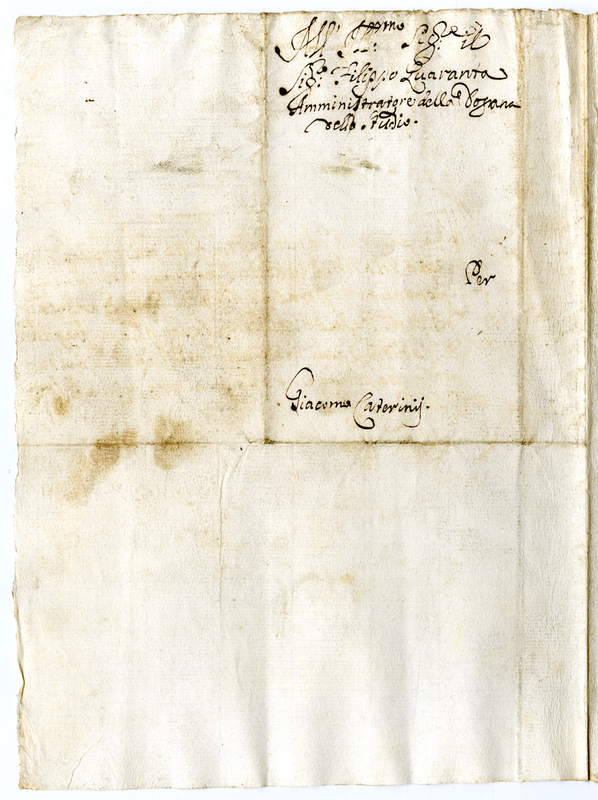 All' Ill.mo Sig.re il
Sig.r Filippo Quaranta
Amministratore della Dogana
dello Studio.
Per
Giacomo Caterinij.